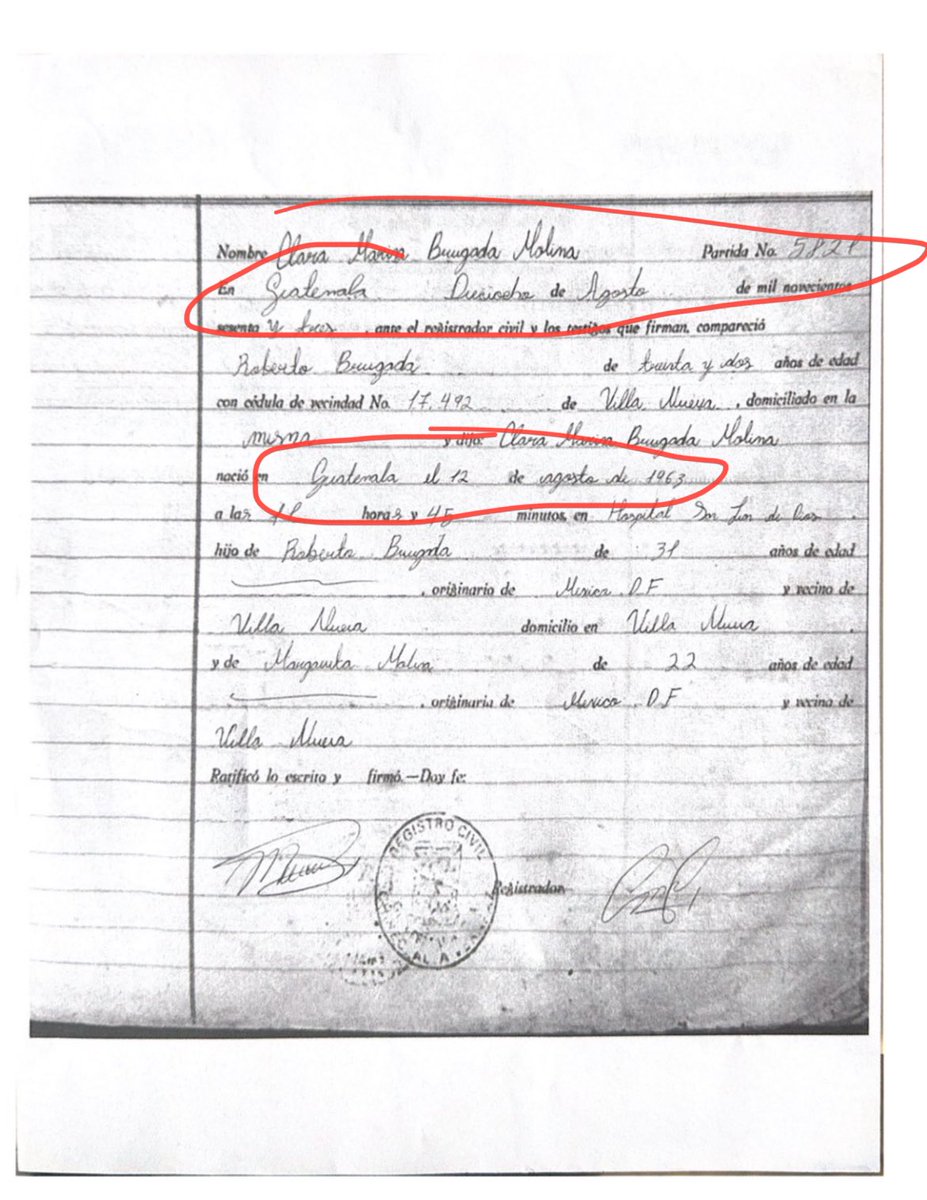 Nombre Clara Marina Brugada Molina Partida No. 5821
En Guatemala Dieciocho de Agosto de mil novecientos
sesenta y tres , ante el registrador civil y los testigos que firman, compareció
Roberto Brugada de treinta y dos años de edad
con cédula de vecindad No. 17.492 de Villa Nueva , domiciliado en la
misma y dijo: Clara Marina Brugada Molina
nació en Guatemala el 12 de agosto de 1963
a las horas y 45 minutos, en Hospital San Juan de Dios .
hijo de Roberto Brugada de 31 años de edad
, originario de Mexico D.F y vecino de
Villa Nueva domicilio en Villa Nueva .
y de Margarita Molina de 22 años de edad
, originaria de Mexico D.F y vecino de
Villa Nueva
Ratificó lo escrito y firmó.—Doy fe:
REGISTRO CIVIL
Registrador